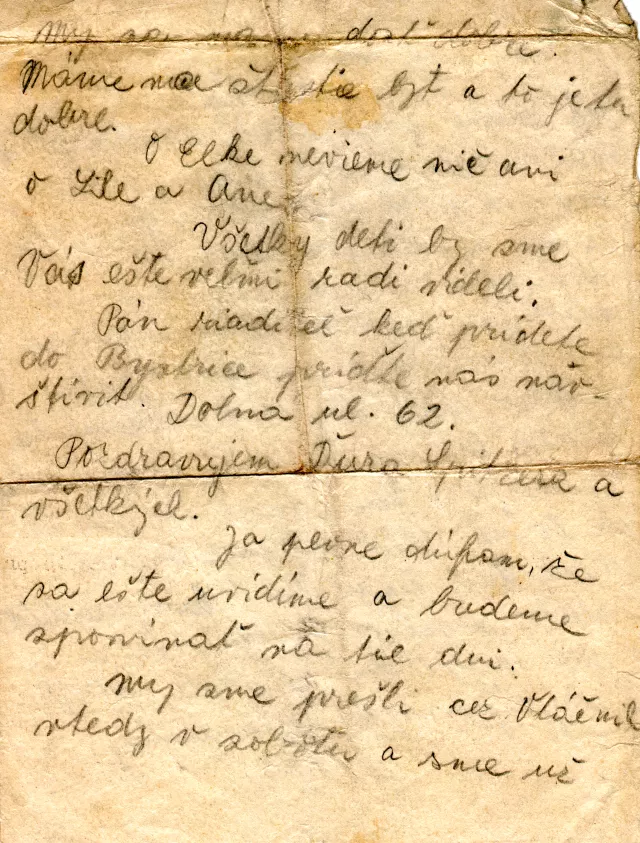 My sa máme dosť dobre.
Máme na šťastie byt a to je tu
dobre.
O Elke nevieme nič ani
o Lile a Ane.
Všetky deti by sme
Vás ešte veľmi radi videli.
Pán riaditeľ keď prídete
do Bystrice príďte nás náv-
štíviť. Dolna ul. 62.
Pozdravujem Ďura a
všetkých.
Ja pevne dúfam, že
sa ešte uvidíme a budeme
spomínať na tie dni.
My sme prešli cez
vtedy v sobotu a sme už